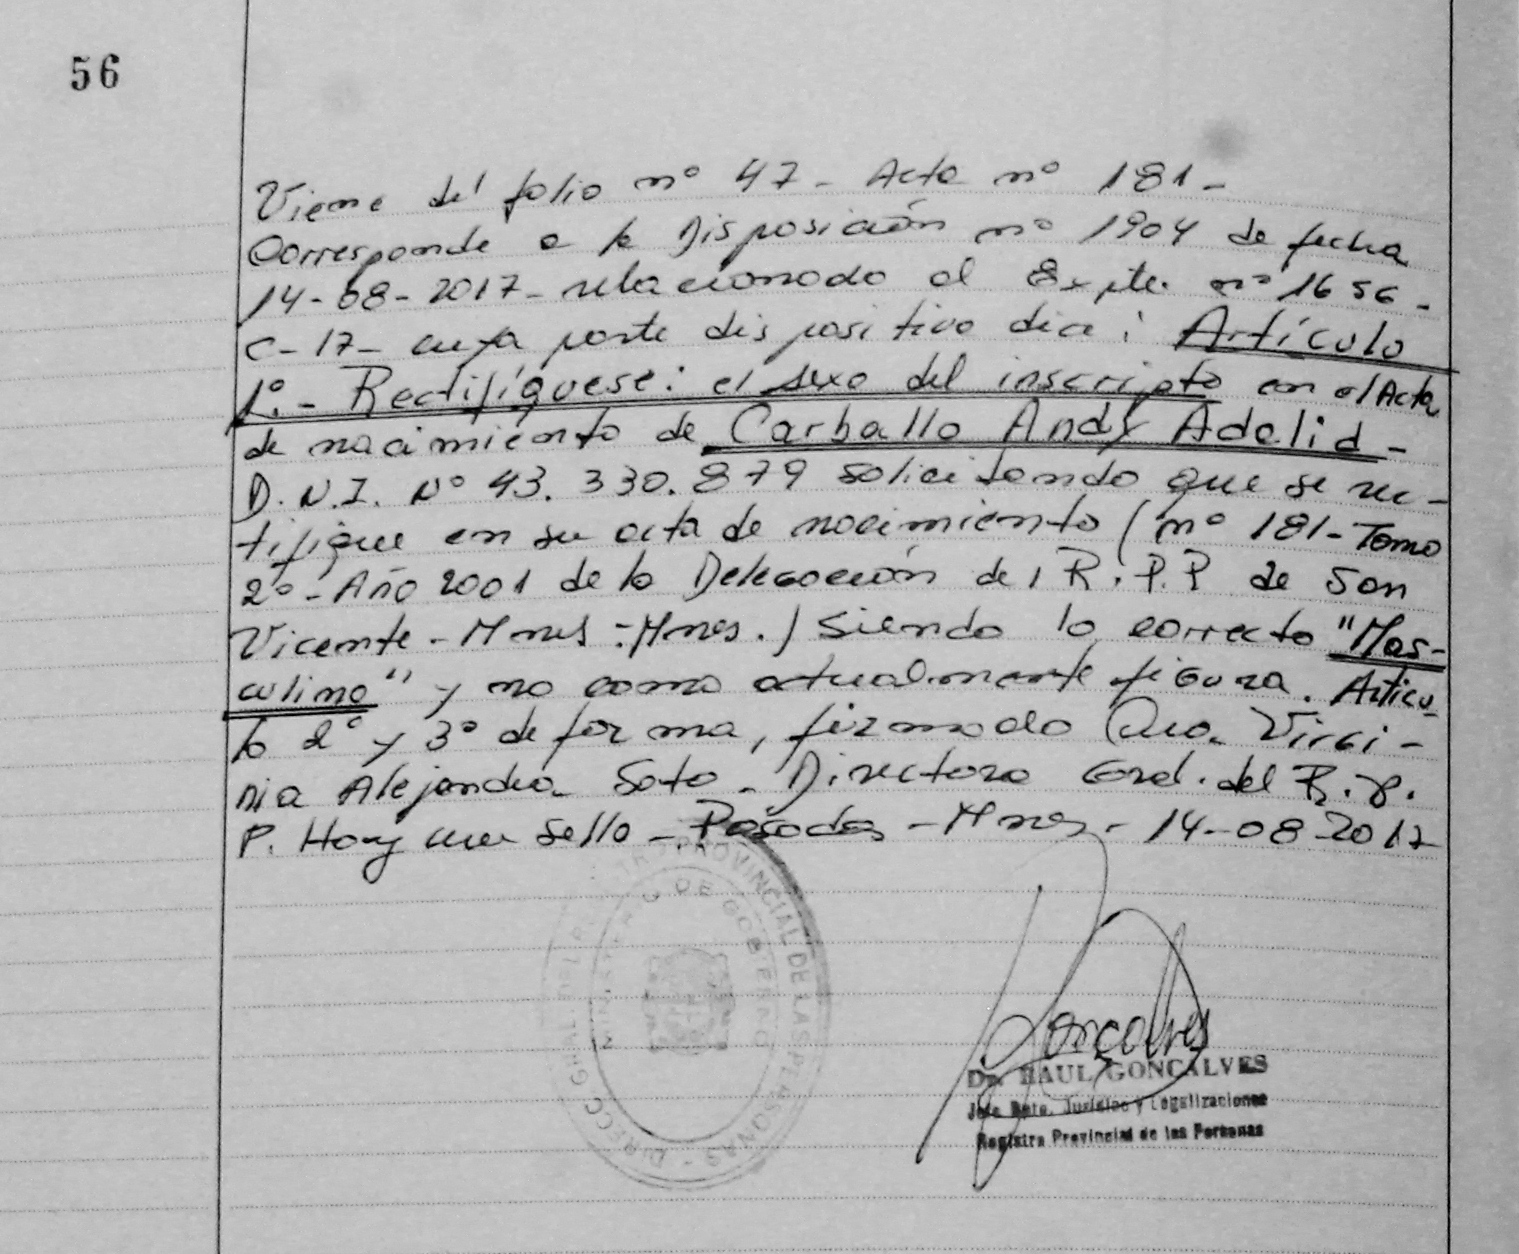 56
Viene del folio nº 47 - Acta nº 181 -
Corresponde a la Disposición nº 1904 de fecha
14-08-2017 - relacionado al Expte. nº 1656 -
C-17- cuya parte dispositiva dice: Artículo
1º.- Rectifíquese: el sexo del inscripto en el Acta
de nacimiento de Carballo Andy Adalid -
D.N.I. Nº 43.330.879 solicitando que se rec-
tifique en su acta de nacimiento (nº 181- Tomo
2º - Año 2001 de la Delegación del R.P.P de San
Vicente - Mnes - Mnes.) siendo lo correcto "Mas-
culino" y no como actualmente figura. Artícu-
lo 2º y 3º de forma, firmado Dra. Virgi-
nia Alejandra Soto - Directora Gral. del R.P.
P. Hay un sello - Posadas - Mnes - 14-08-2017
DIRECC. GRAL. DEL REGISTRO PROVINCIAL DE LAS PERSONAS -
MINISTERIO DE GOBIERNO
Gonçalves
Dr. RAUL GONCALVES
Jefe Dpto. Jurídico y Legalizaciones
Registro Provincial de las Personas